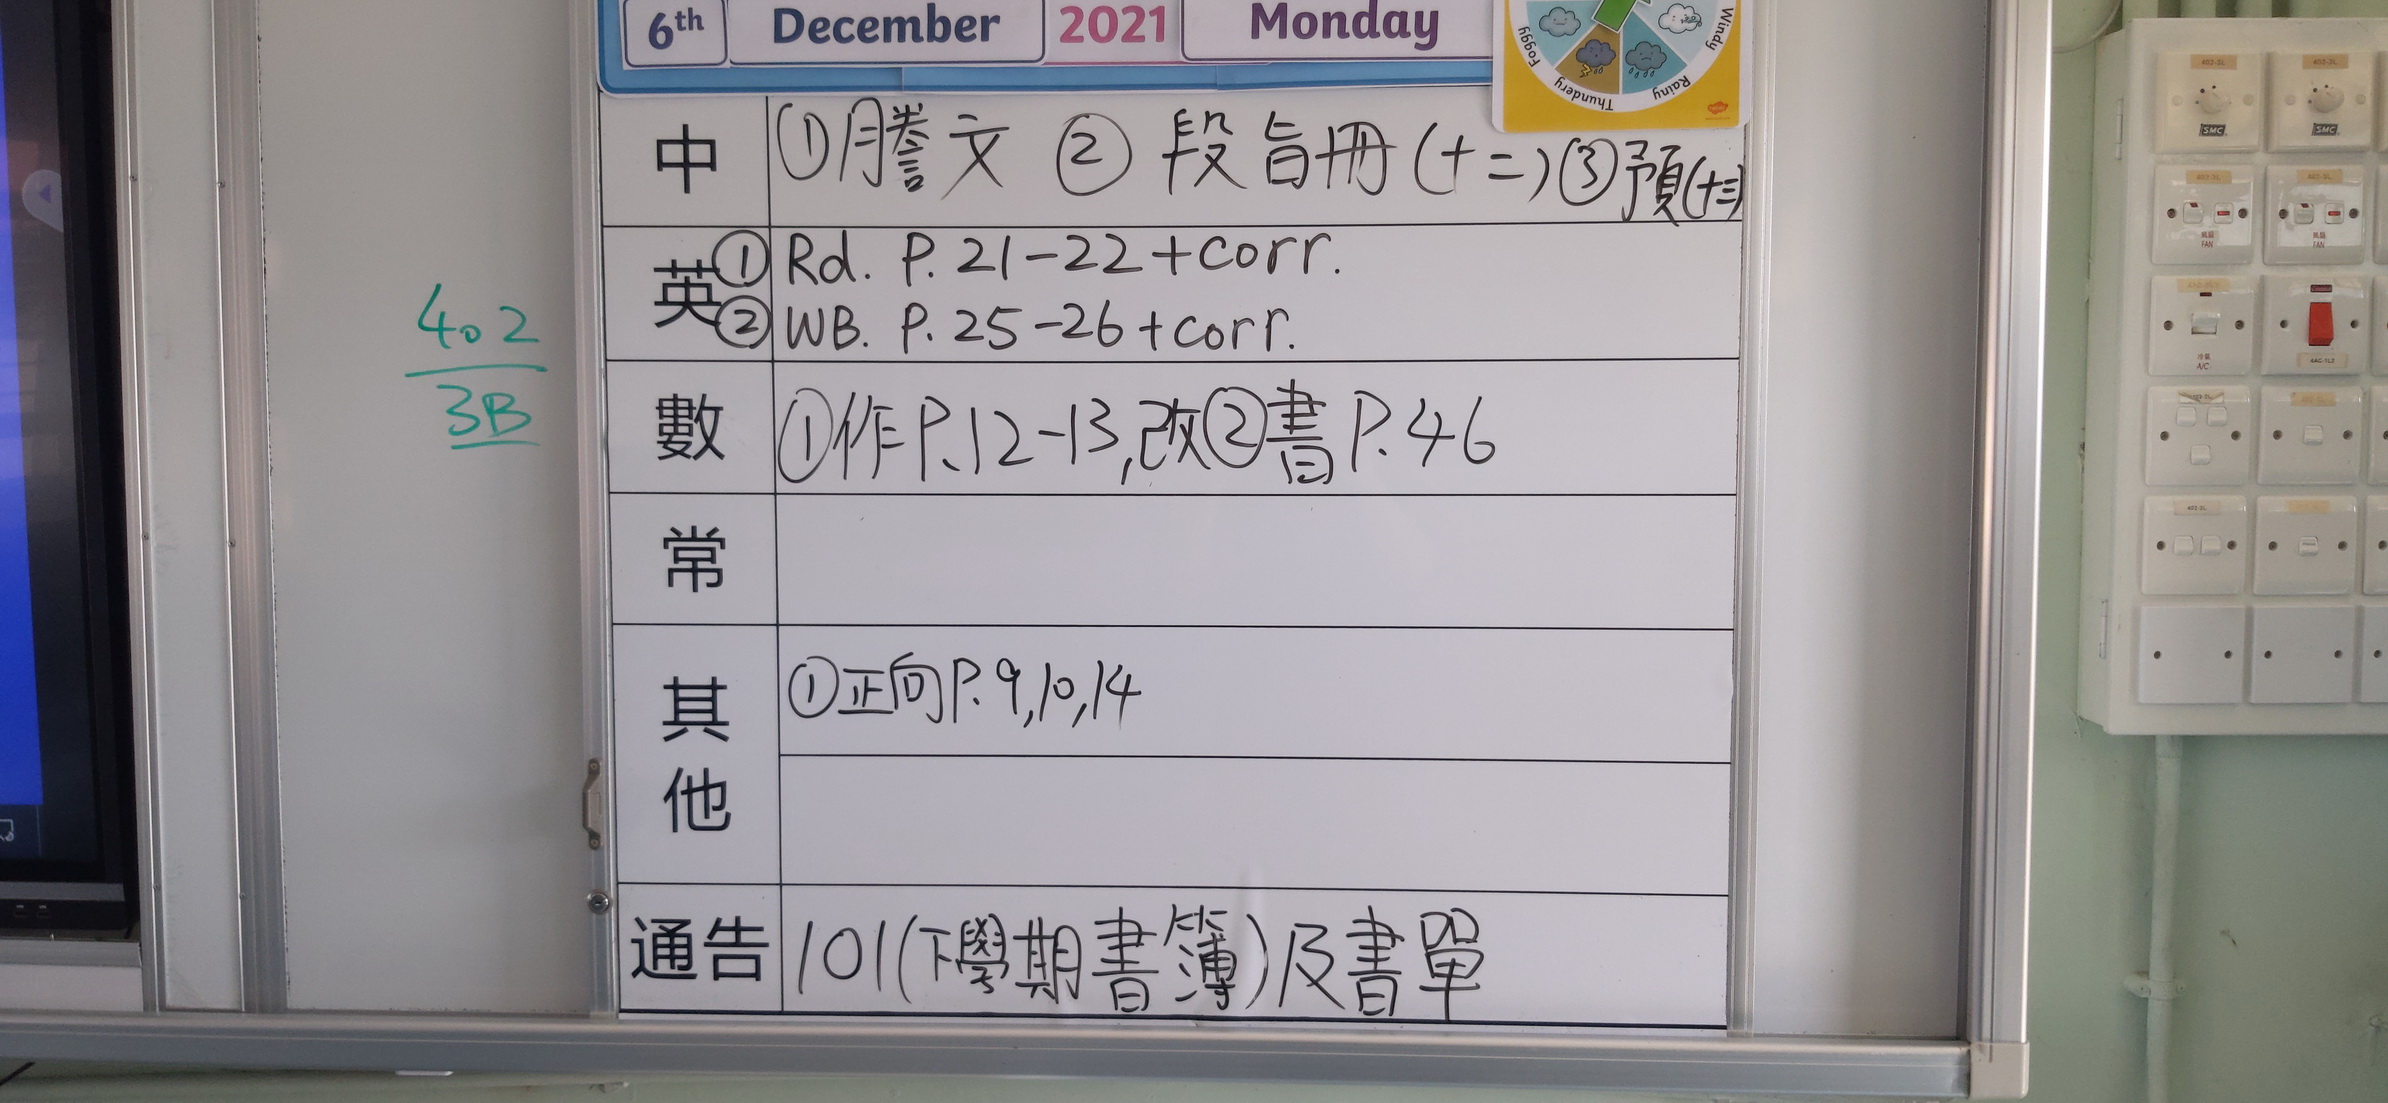 6th December 2021 Monday
Foggy Thundery Rainy Windy
中 ①謄文 ② 段旨冊(十二)③預(十三)
英 ① Rd. P. 21-22 + corr.
② WB. P. 25-26 + corr.
數 ①作P.12-13,改②書P.46
常
其他 ①正向P.9,10,14
通告 101(下學期書簿)及書單
402
3B
SMC
SMC
FAN
FAN
A/C